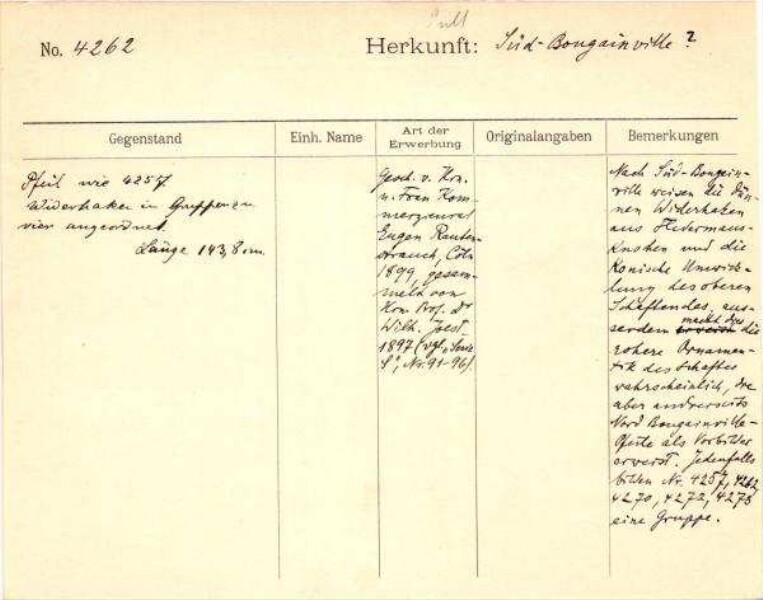 No. 4262
Herkunft: Süd-Bougainville?
Gegenstand
Einh. Name
Art der Erwerbung
Originalangaben
Bemerkungen
Pfeil wie 4257.
Widerhaken in Gruppen zu
vier angeordnet.
Länge 143,8 cm.
Gesch. v. Hrn.
u. Frau Kom-
merzienrat
Eugen Rauten-
strauch, Cöln
1899, gesam-
melt von
Hrn Prof. Dr
Wilh. Joest
1897 (vgl. „Serie
S", Nr. 91-96).
Nach Süd-Bougain-
ville weisen die dün-
nen Widerhaken
aus Fledermaus-
knochen und die
konische Umwick-
lung des oberen
Schaftendes, aus-
serdem macht dies die
rohere Ornamen-
tik des Schaftes
wahrscheinlich, die
aber andrerseits
Nord Bougainville-
Pfeile als Vorbilder
erweist. Jedenfalls
bilden Nr. 4257, 4262,
4270, 4272, 4278
eine Gruppe.